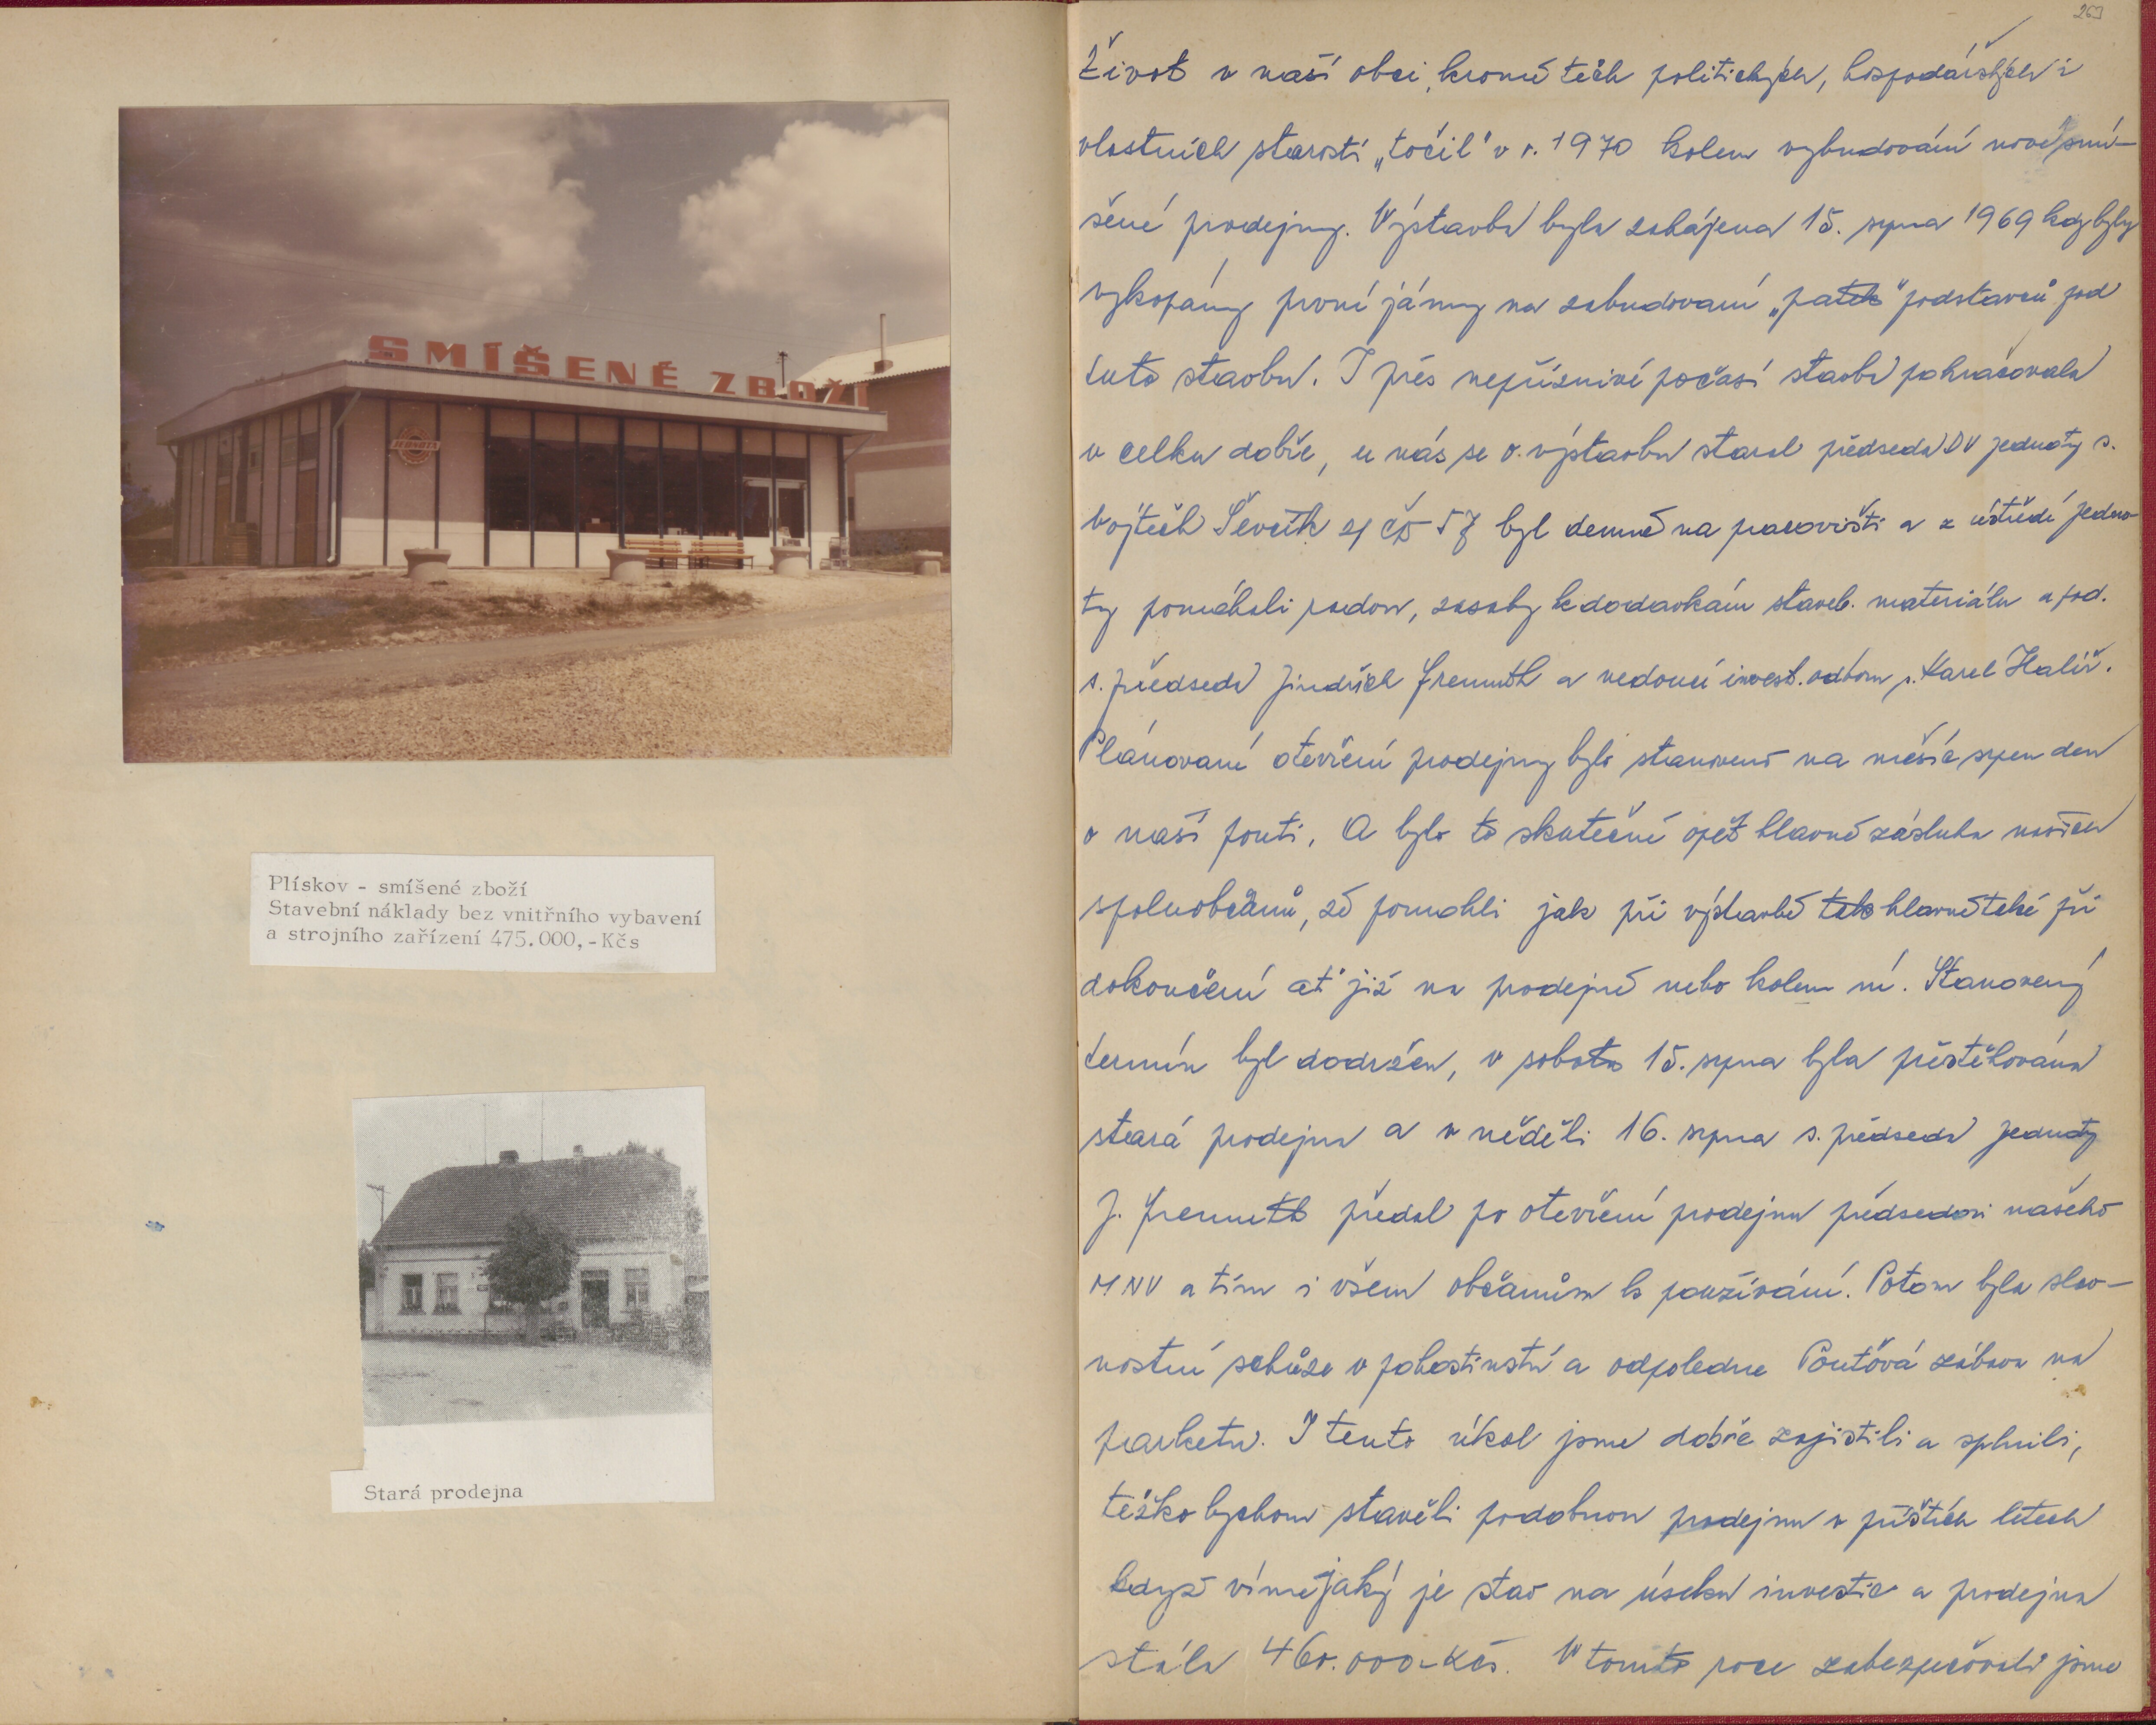 SMÍŠENÉ ZBOŽÍ
JEDNOTA
Plískov - smíšené zboží
Stavební náklady bez vnitřního vybavení
a strojního zařízení 475.000,-Kčs
Stará prodejna
263
Život v naší obci, kromě těch politických, hospodářských i
vlastních starostí „točil" v r. 1970 kolem vybudování nové smí-
šené prodejny. Výstavba byla zahájena 15. srpna 1969 kdy byly
vykopány první jámy na zabudovaní „patek" podstavců pod
tuto stavbu. I přes nepříznivé počasí stavba pokračovala
v celku dobře, u nás se o výstavbu staral předseda DV jednoty s.
Vojtěch Ševčík čp 57 byl denně na pracovišti a z ústředí jedno-
ty pomáhali radou, zásahy k dodávkám staveb. materiálu a pod.
s. předseda Jindřich Fremuth a vedoucí invest. odboru s. Karel Halíř.
Plánované otevření prodejny bylo stanoveno na měsíc srpen den
o naší pouti. A bylo to skutečně opět hlavně zásluha našich
spoluobčanů, že pomohli jak při výstavbě tak hlavně také při
dokončení ať již na prodejně nebo kolem ní. Stanovený
termín byl dodržen, v sobotu 15. srpna byla přestěhována
stará prodejna a v neděli 16. srpna s. předseda jednoty
J. Fremuth předal po otevření prodejnu předsedovi našeho
MNV a tím i všem občanům k používání. Potom byla slav-
nostní schůze v pohostinství a odpoledne Pouťová zábava na
parketu. I tento úkol jsme dobře zajistili a splnili,
těžko bychom stavěli podobnou prodejnu v příštích letech
když víme jaký je stav na úseku investic a prodejna
stála 460.000-Kčs. V tomto roce zabezpečovali jsme